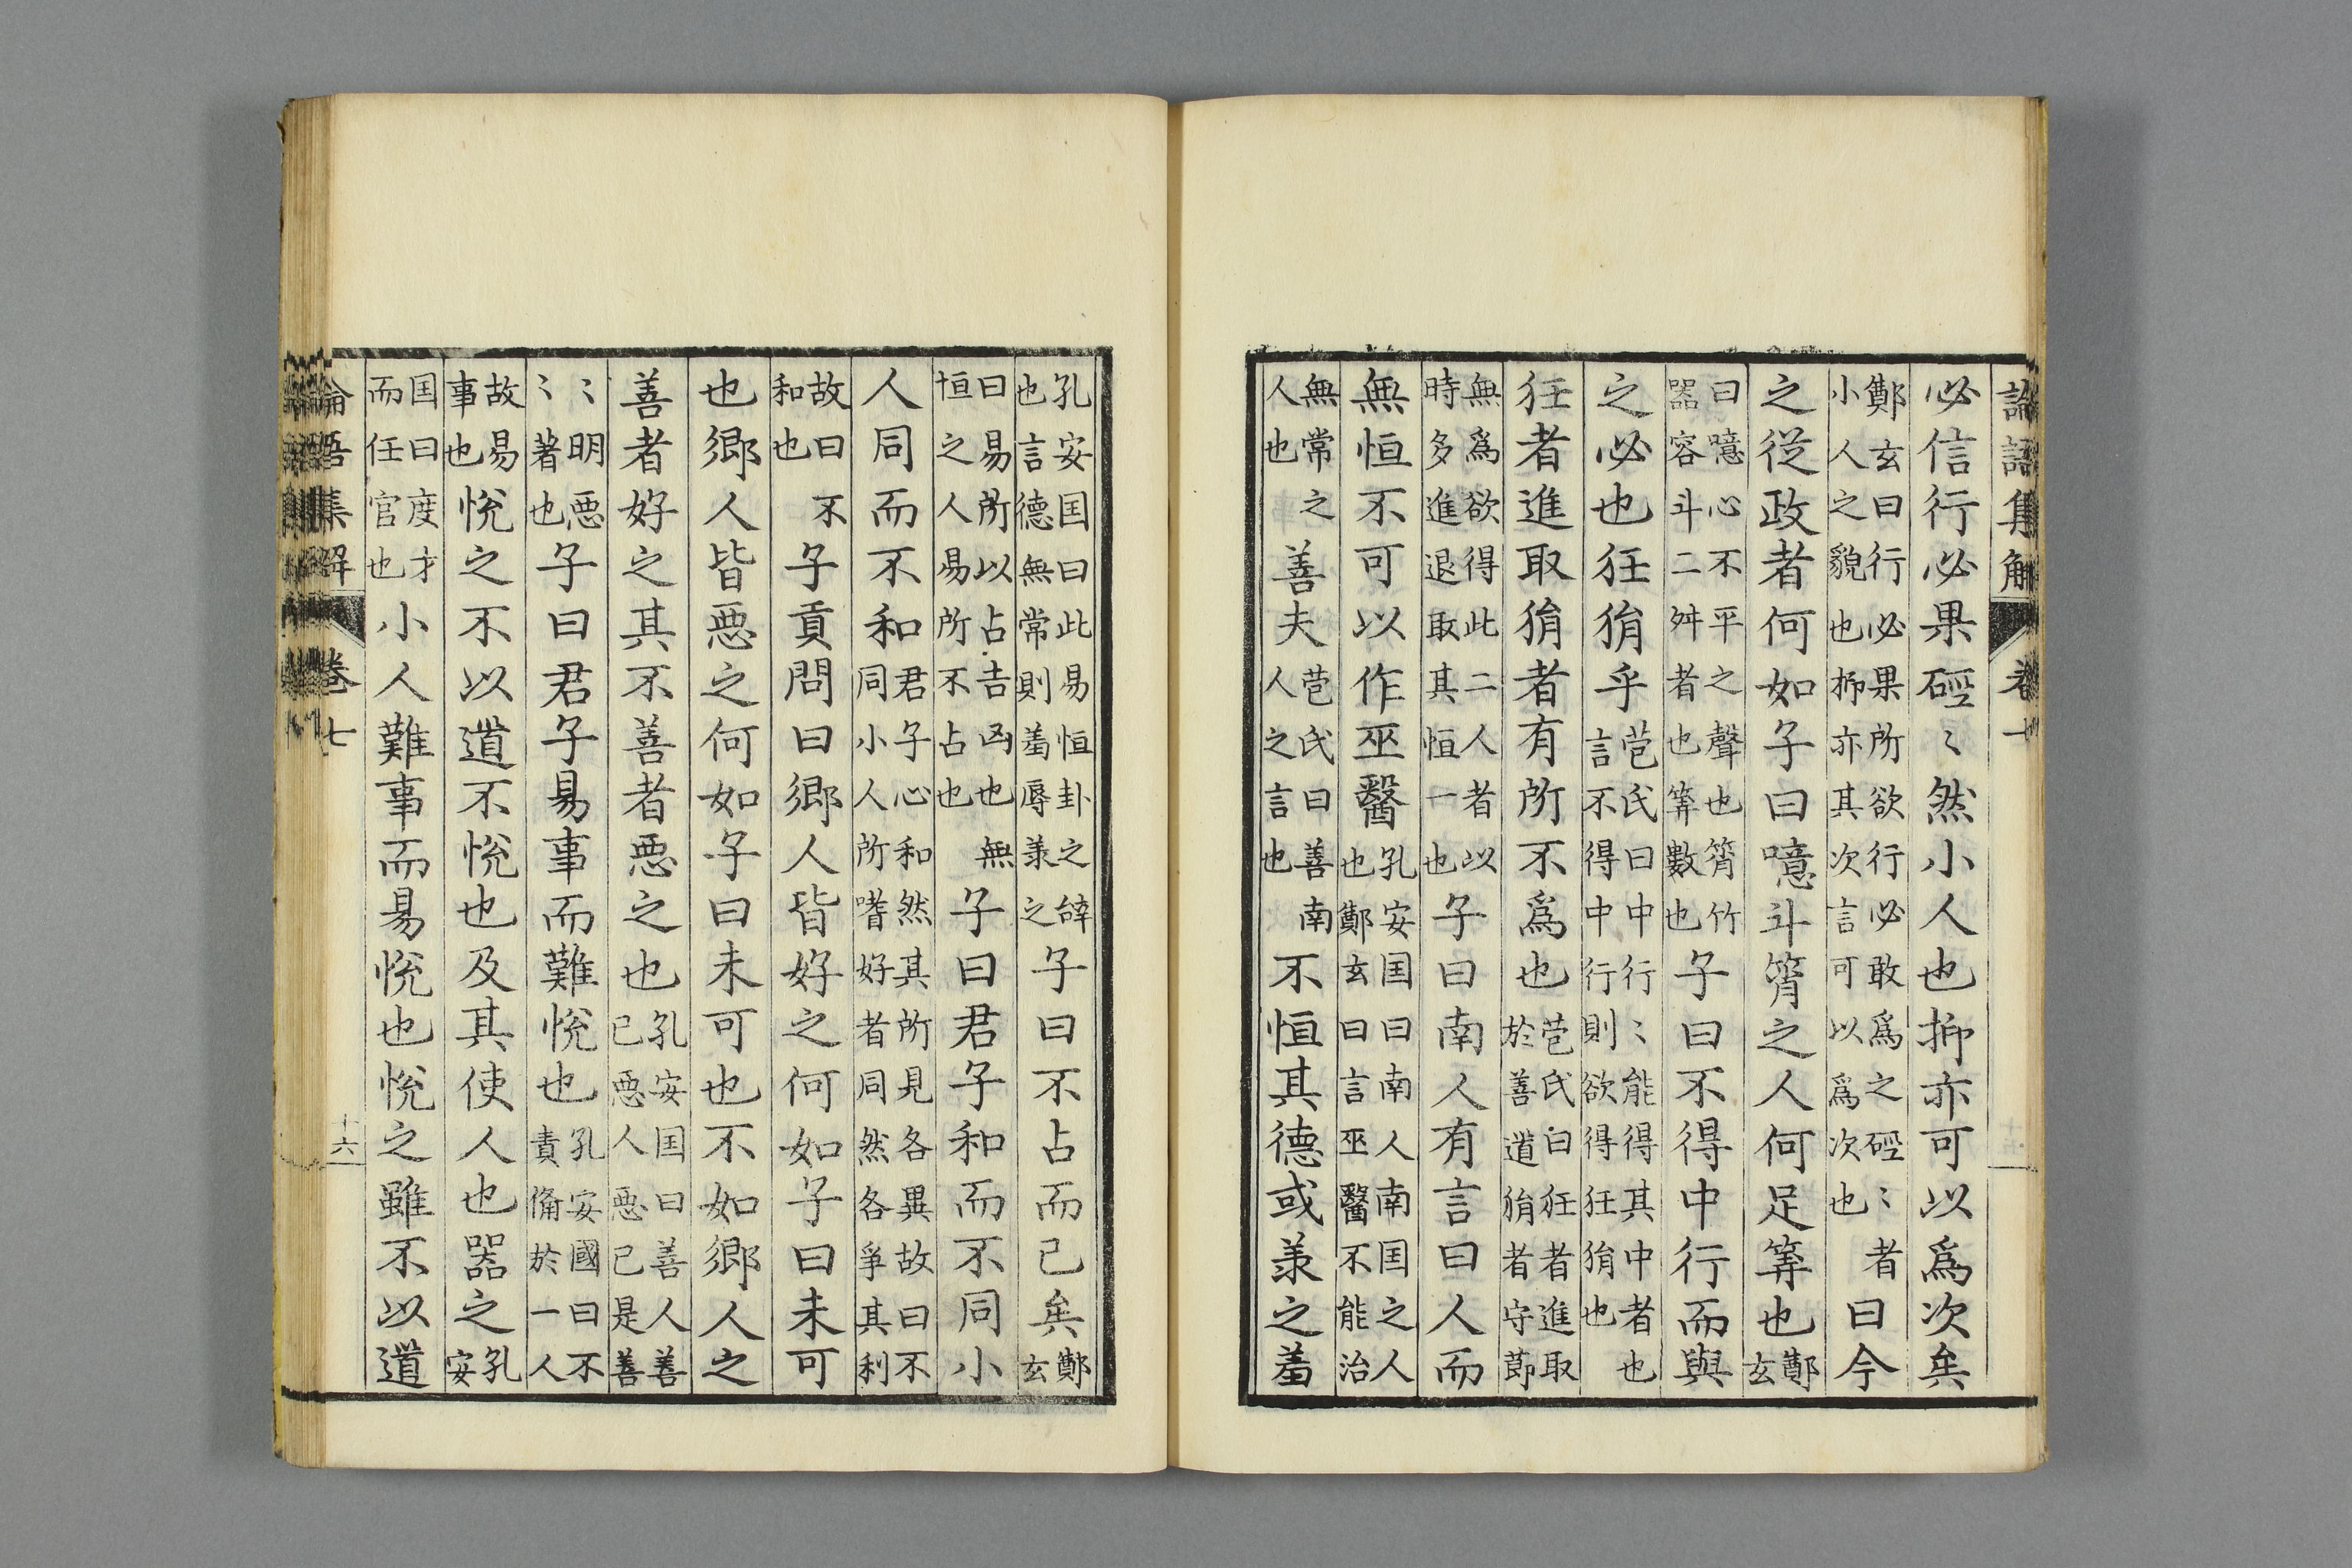 論語集解 卷七 十五
必信行必果硜〻然小人也抑亦可以爲次矣
鄭玄曰行必果所欲行必敢爲之硜〻者小人之貌也抑亦其次言可以爲次也曰今
之從政者何如子曰噫斗筲之人何足筭也鄭玄
曰噫心不平之聲也筲竹器容斗二舛者也筭數也子曰不得中行而與
之必也狂狷乎苞氏曰中行〻能得其中者也言不得中行則欲得狂狷也
狂者進取狷者有所不爲也苞氏曰狂者進取於善道狷者守莭
無爲欲得此二人者以時多進退取其恒一也子曰南人有言曰人而
無恒不可以作巫醫孔安国曰南人南国之人也鄭玄曰言巫醫不能治
無常之人也善夫苞氏曰善南人之言也不恒其德或羕之羞
孔安国曰此易恒卦之辤也言德無常則羞辱羕之子曰不占而已矣鄭玄
曰易所以占吉凶也無恒之人易所不占也子曰君子和而不同小
人同而不和君子心和然其所見各異故曰不同小人所嗜好者同然各爭其利
故曰不和也子貢問曰鄉人皆好之何如子曰未可
也鄉人皆惡之何如子曰未可也不如鄉人之
善者好之其不善者惡之也孔安国曰善人善己惡人惡己是善善
〻明惡〻著也子曰君子易事而難悅也孔安國曰不責備於一人
故易事也悅之不以道不悅也及其使人也器之孔安
国曰度才而任官也小人難事而易悅也悅之雖不以道
論語集解 卷七 十六